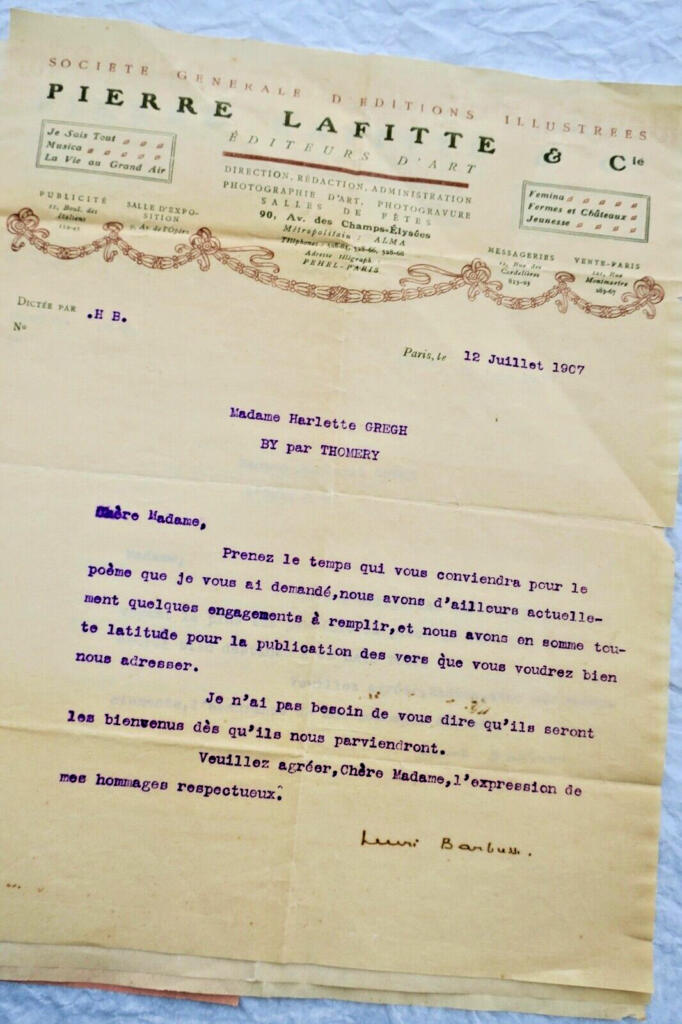 SOCIÉTÉ GÉNÉRALE D'ÉDITIONS ILLUSTRÉES
PIERRE LAFITTE & Cie
ÉDITEURS D'ART
Je Sais Tout
Musica
La Vie au Grand Air
DIRECTION, RÉDACTION, ADMINISTRATION
PHOTOGRAPHIE D'ART, PHOTOGRAVURE
SALLES DE FÊTES
90, Av. des Champs-Élysées
Métropolitain : ALMA
Téléphones : 528-66, 528-68
Adresse télégraph :
PEHEL-PARIS
Femina
Fermes et Châteaux
Jeunesse
PUBLICITÉ
Boul. des
Italiens
SALLE D'EXPO-
SITION
9, Av. de l'Opéra
MESSAGERIES
Rue des
Cordelières
813-93
VENTE-PARIS
Rue
Montmartre
283-67
DICTÉE PAR .H B.
No
Paris, le 12 Juillet 1907
Madame Harlette GREGH
BY par THOMERY
Chère Madame,
Prenez le temps qui vous conviendra pour le
poème que je vous ai demandé,nous avons d'ailleurs actuelle-
ment quelques engagements à remplir,et nous avons en somme tou-
te latitude pour la publication des vers que vous voudrez bien
nous adresser.
Je n'ai pas besoin de vous dire qu'ils seront
les bienvenus dès qu'ils nous parviendront.
Veuillez agréer,Chère Madame,l'expression de
mes hommages respectueux.
Henri Barbusse.